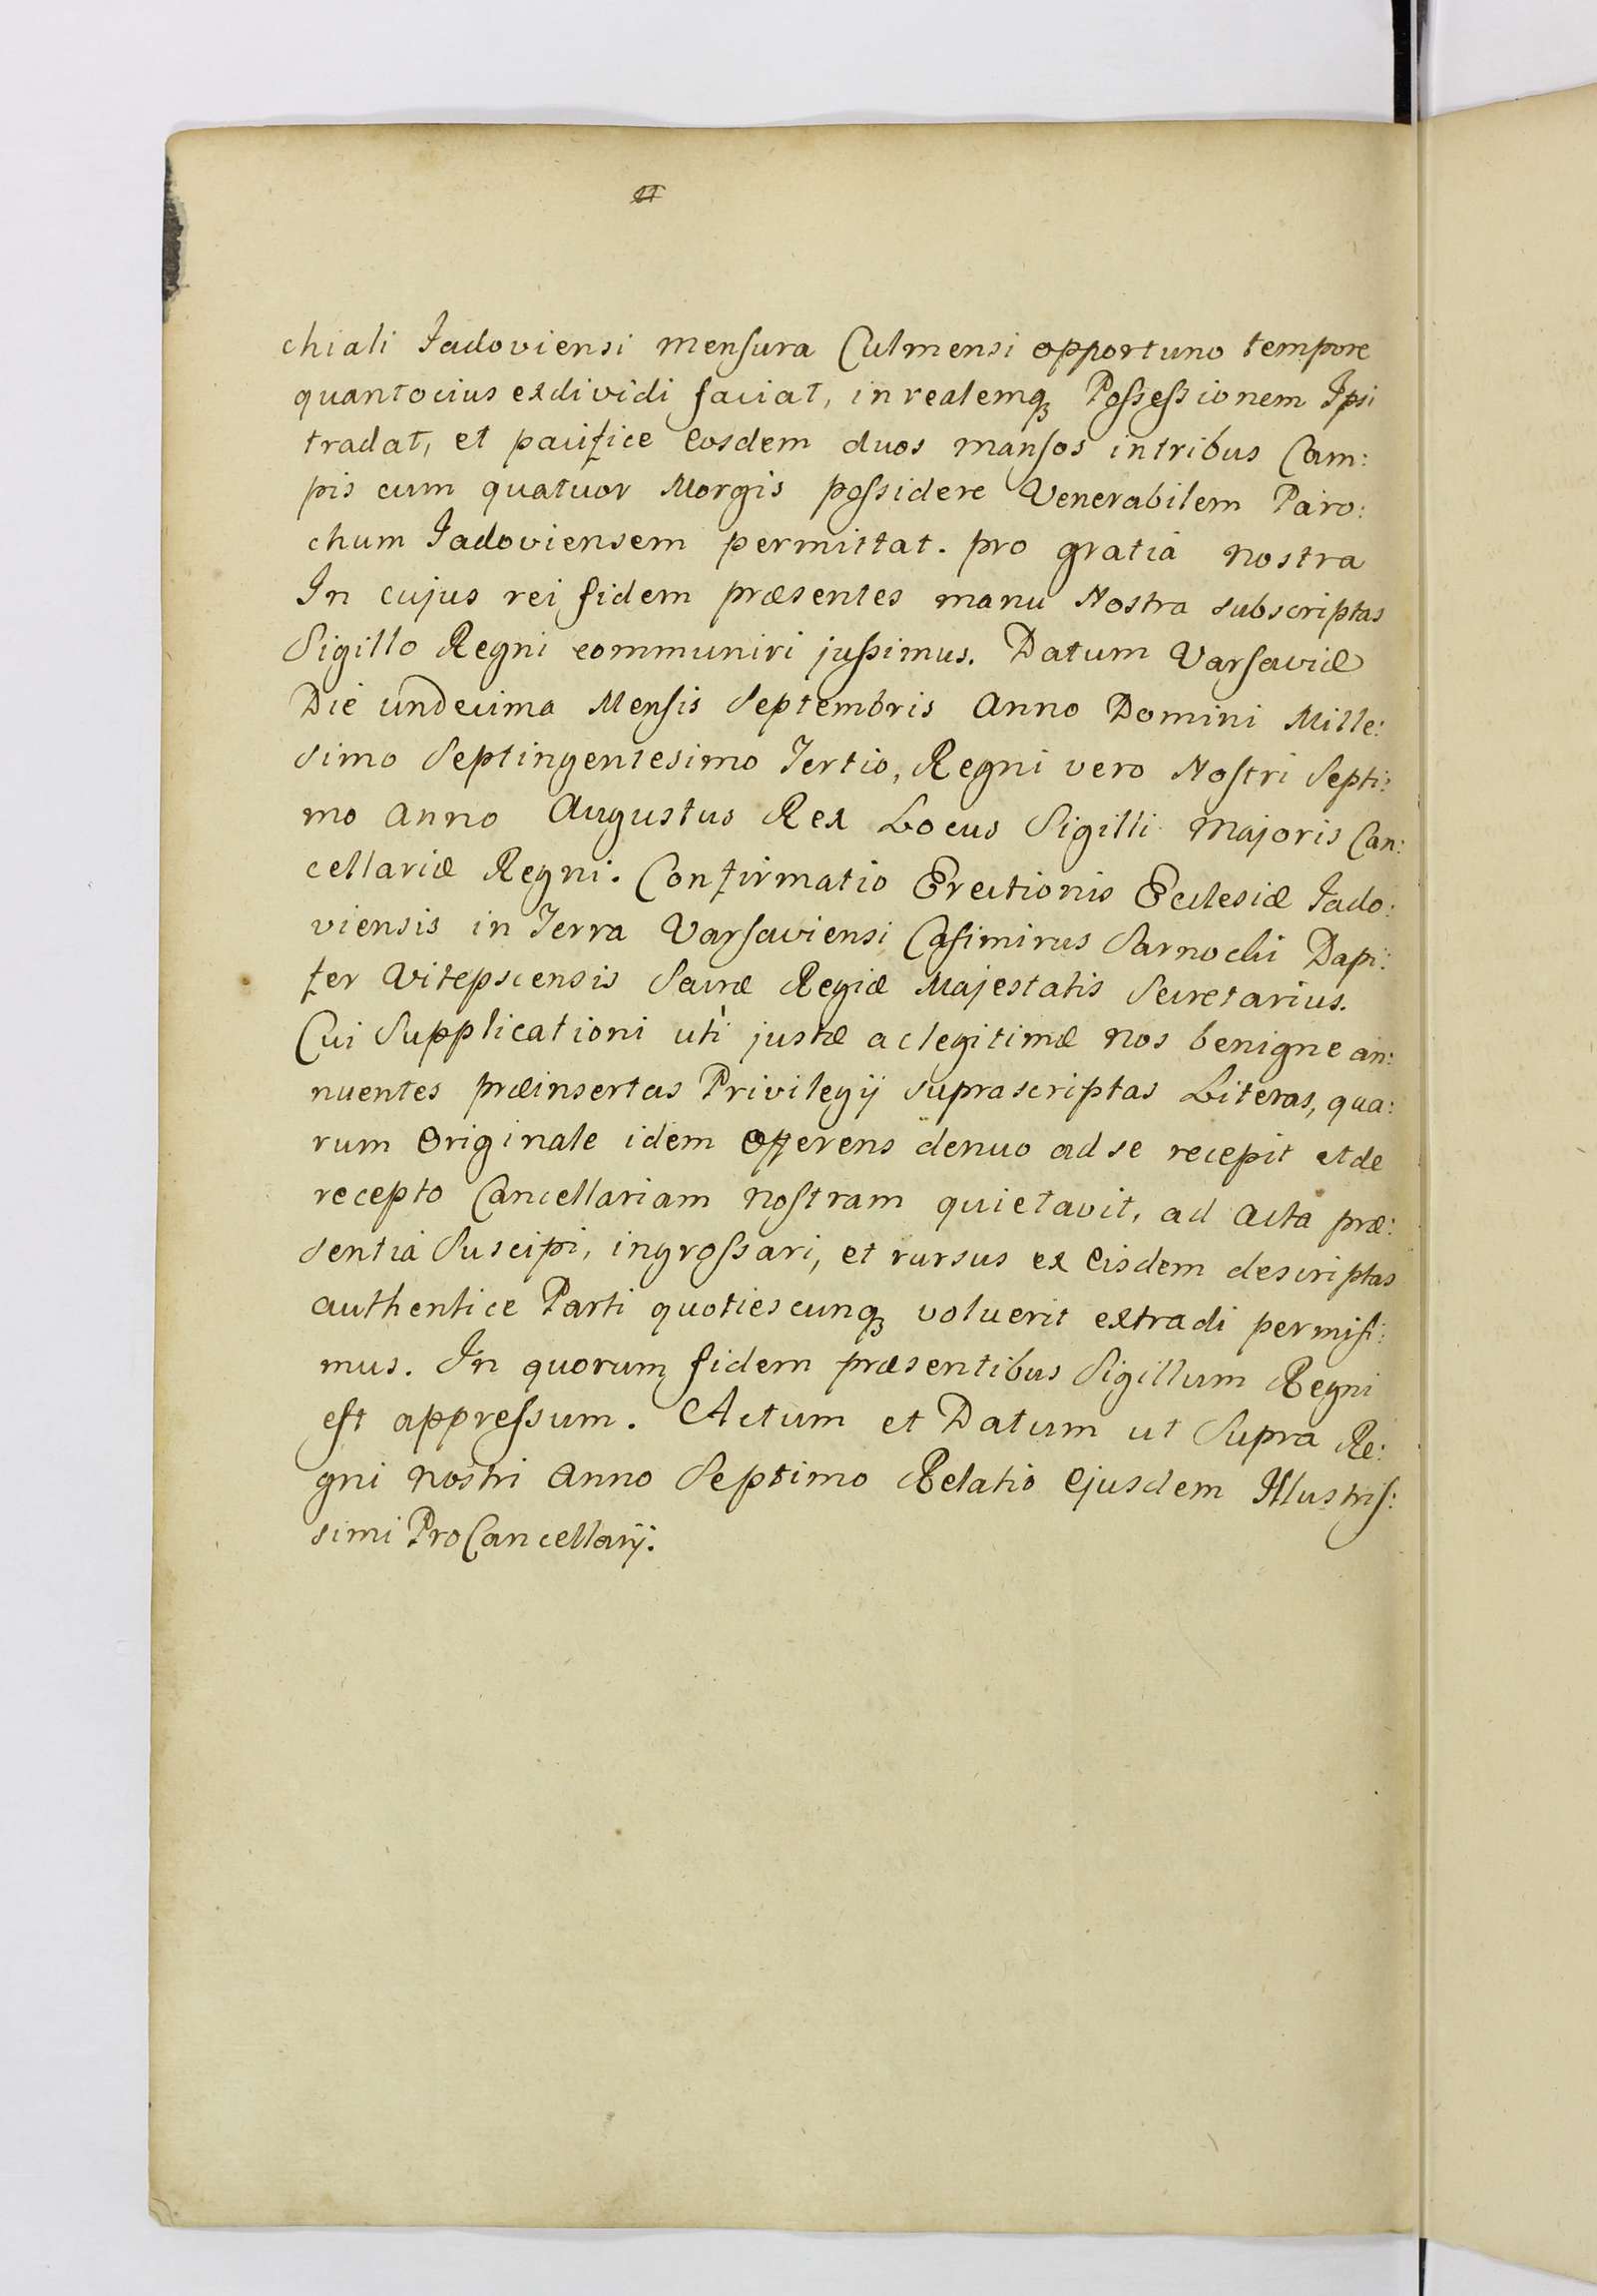 chiali Jadoviensi mensura Culmensi opportuno tempore
quantocius exdividi faciat, in realemq3 Possessionem Ipsi
tradat, et pacifice eosdem duos mansos in tribus Cam:
pis cum quatuor Morgis possidere Venerabilem Paro:
chum Jadoviensem permittat. pro gratiâ nostra
In cujus rei fidem præsentes manu Nostra subscriptas
Sigillo Regni communiri jussimus. Datum Varsaviæ
Die undecima Mensis Septembris Anno Domini Mille:
simo Septingentesimo Tertio, Regni vero Nostri Septi:
mo Anno Augustus Rex Locus Sigilli Majoris Can:
cellariæ Regni. Confirmatio Erectionis Ecclesiæ Jado:
viensis in Terra Varsaviensi Casimirus Sarnocki Dapi:
fer Vitepscensis Sacræ Regiæ Majestatis Secretarius.
Cui Supplicationi utì justæ ac legitimæ Nos benigne an:
nuentes præinsertas Privilegij suprascriptas Literas, qua:
rum Originale idem Offerens denuo ad se recepit et de
recepto Cancellariam nostram quietavit, ad Acta præ:
sentia Suscipi, ingrossari, et rursus ex Eisdem descriptas
authentice Parti quotiescunq3 voluerit extradi permisi:
mus. In quorum fidem præsentibus Sigillum Regni
est appressum. Actum et Datum ut Supra Re:
gni nostri Anno Septimo Relatio Ejusdem Illustris:
simi ProCancellarij.